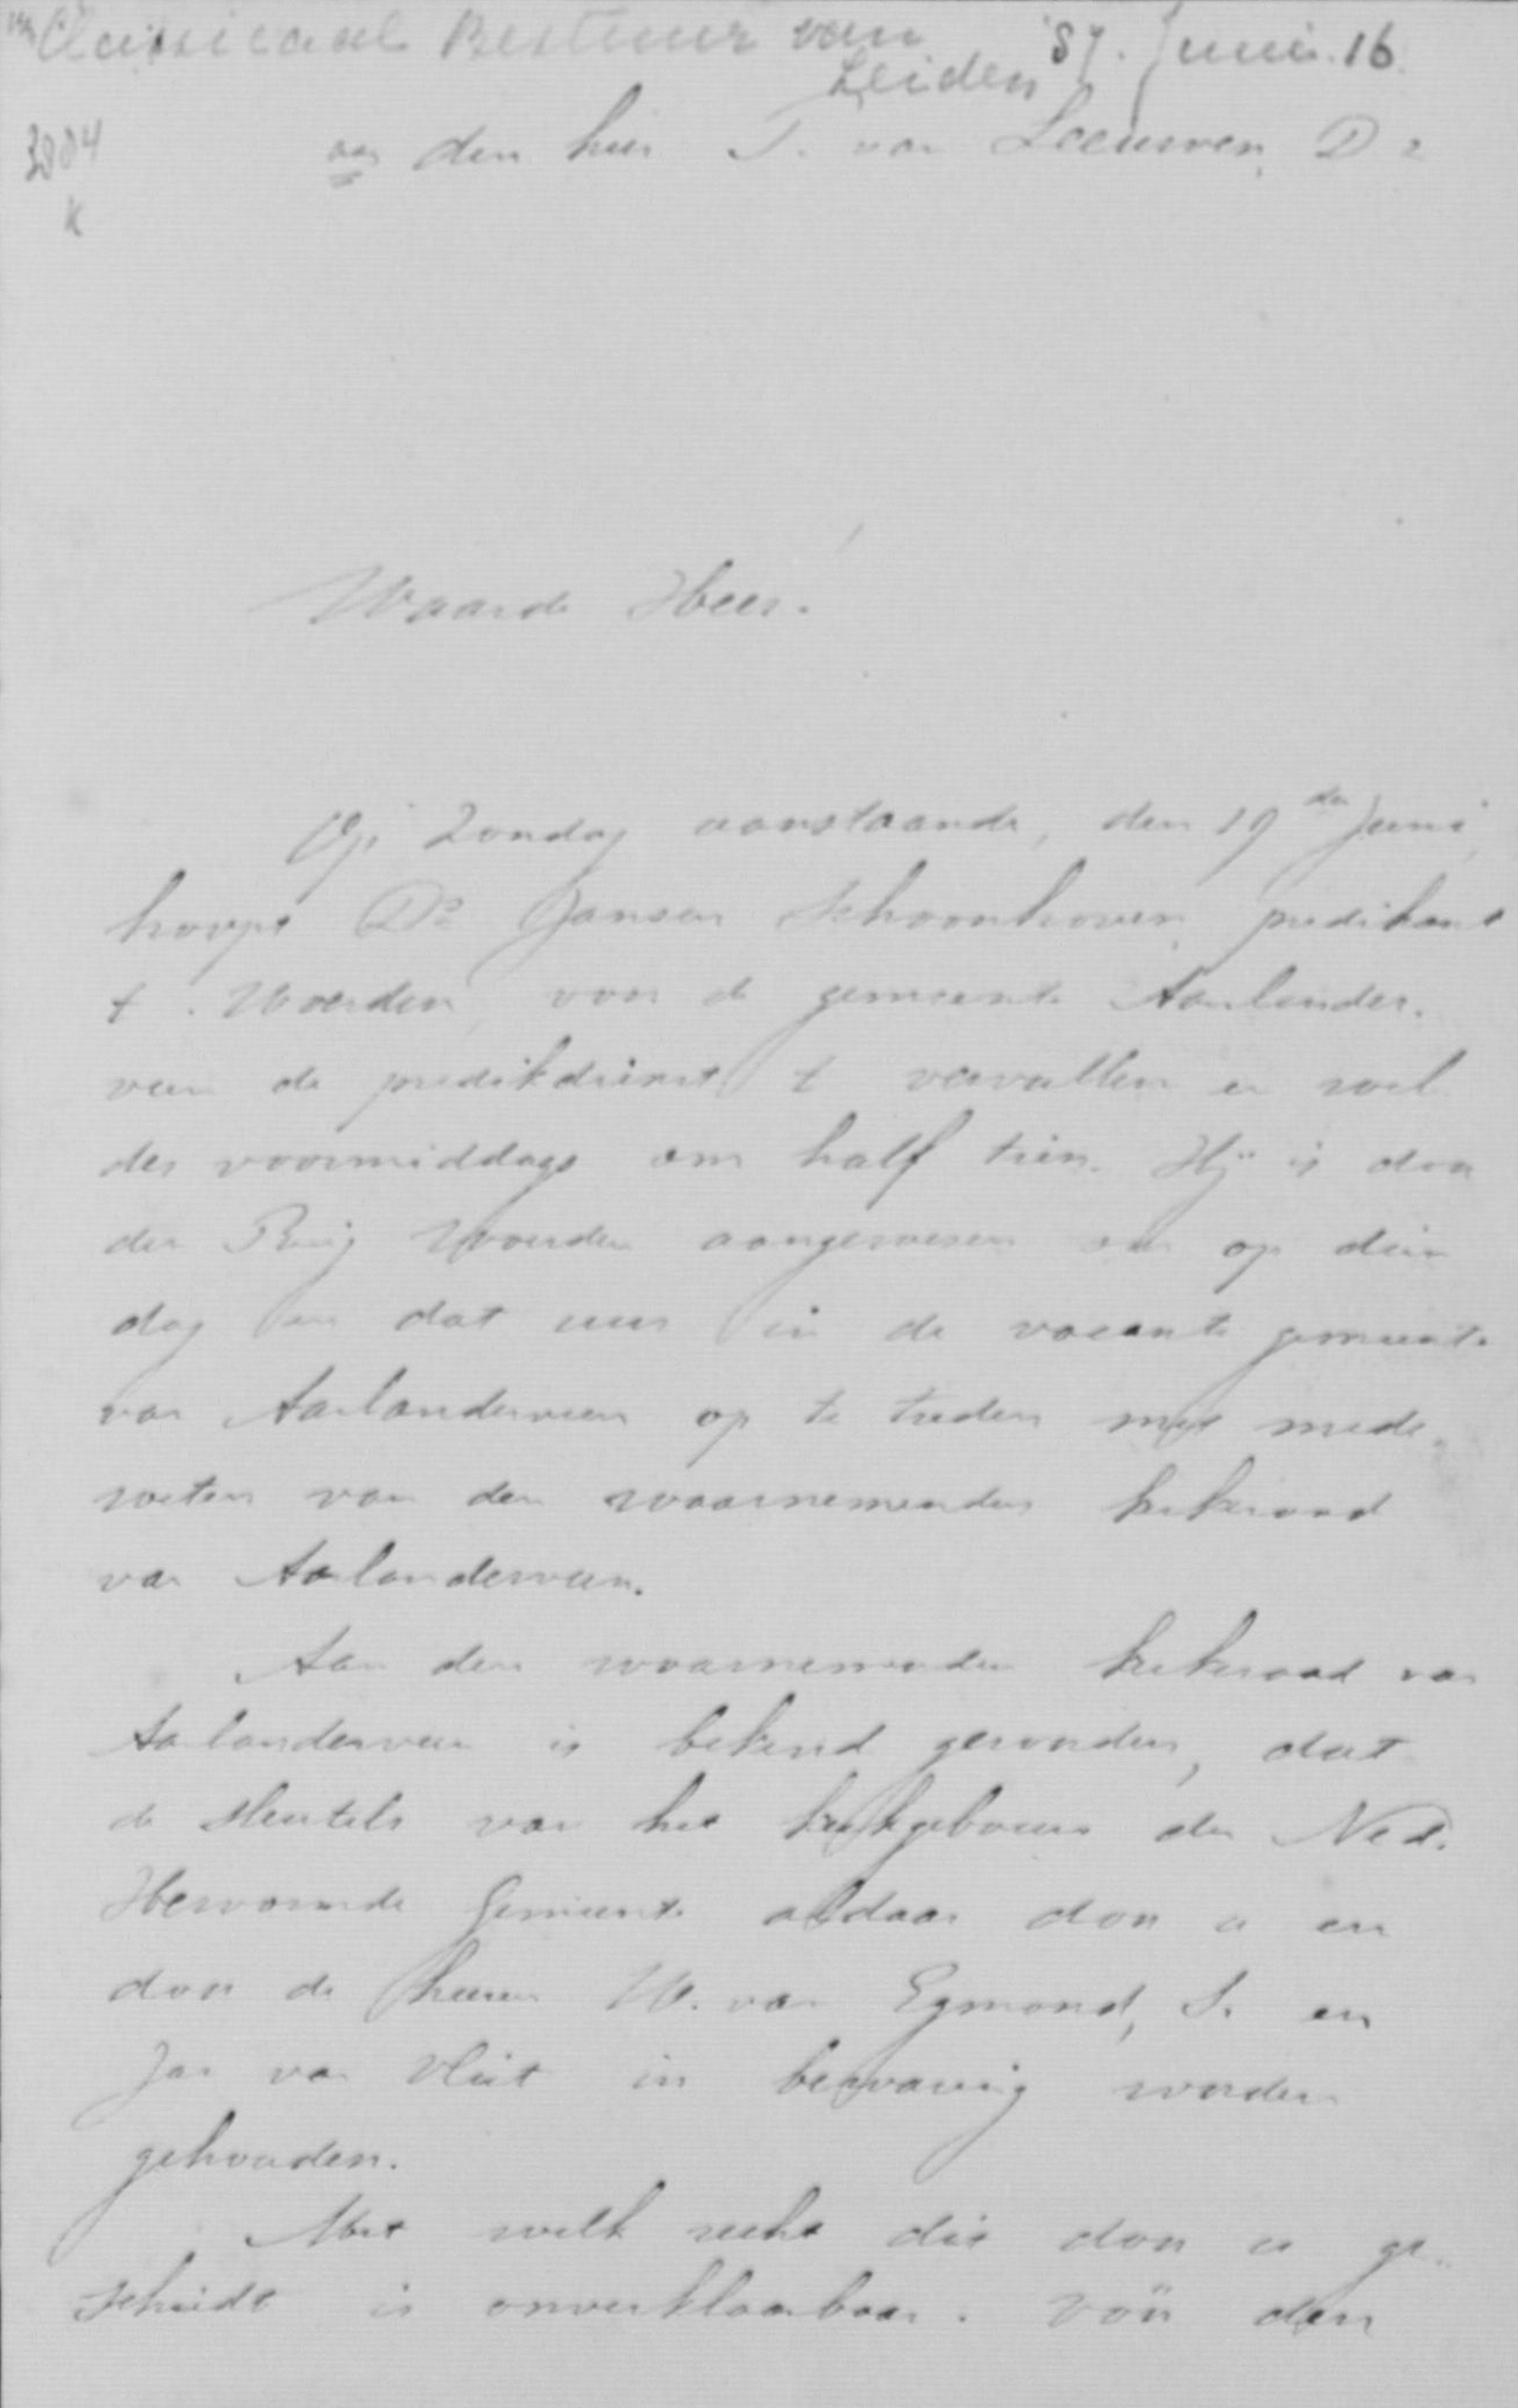 van Classicaal Bestuur van
Leiden '87. Juni. 16.
3804
K
aan den heer T. van Leeuwen, Dz
Waarde Heer!
Op Zondag aanstaande, den 19den Juni,
hoopt Ds Jansen Schoonhoven, predikant
te Woerden, voor de gemeente Aarlander-
veen de predikdienst te vervullen en wel
des voormiddags om half tien. Hij is door
den Ring Woerden aangewezen om op dien
dag en dat uur in de vacante gemeente
van Aarlanderveen op te treden met mede-
weten van den waarnemenden kerkeraad
van Aarlanderveen.
Aan den waarnemenden kerkeraad van
Aarlanderveen is bekend geworden, dat
de sleutels van het kerkgebouw der Ned.
Hervormde Gemeente aldaar door u en
door de heeren W. van Egmond, Sr. en
Jan van Vliet in bewaring worden
gehouden.
Met welk recht dit door u ge-
schiedt is onverklaarbaar. Vóór den